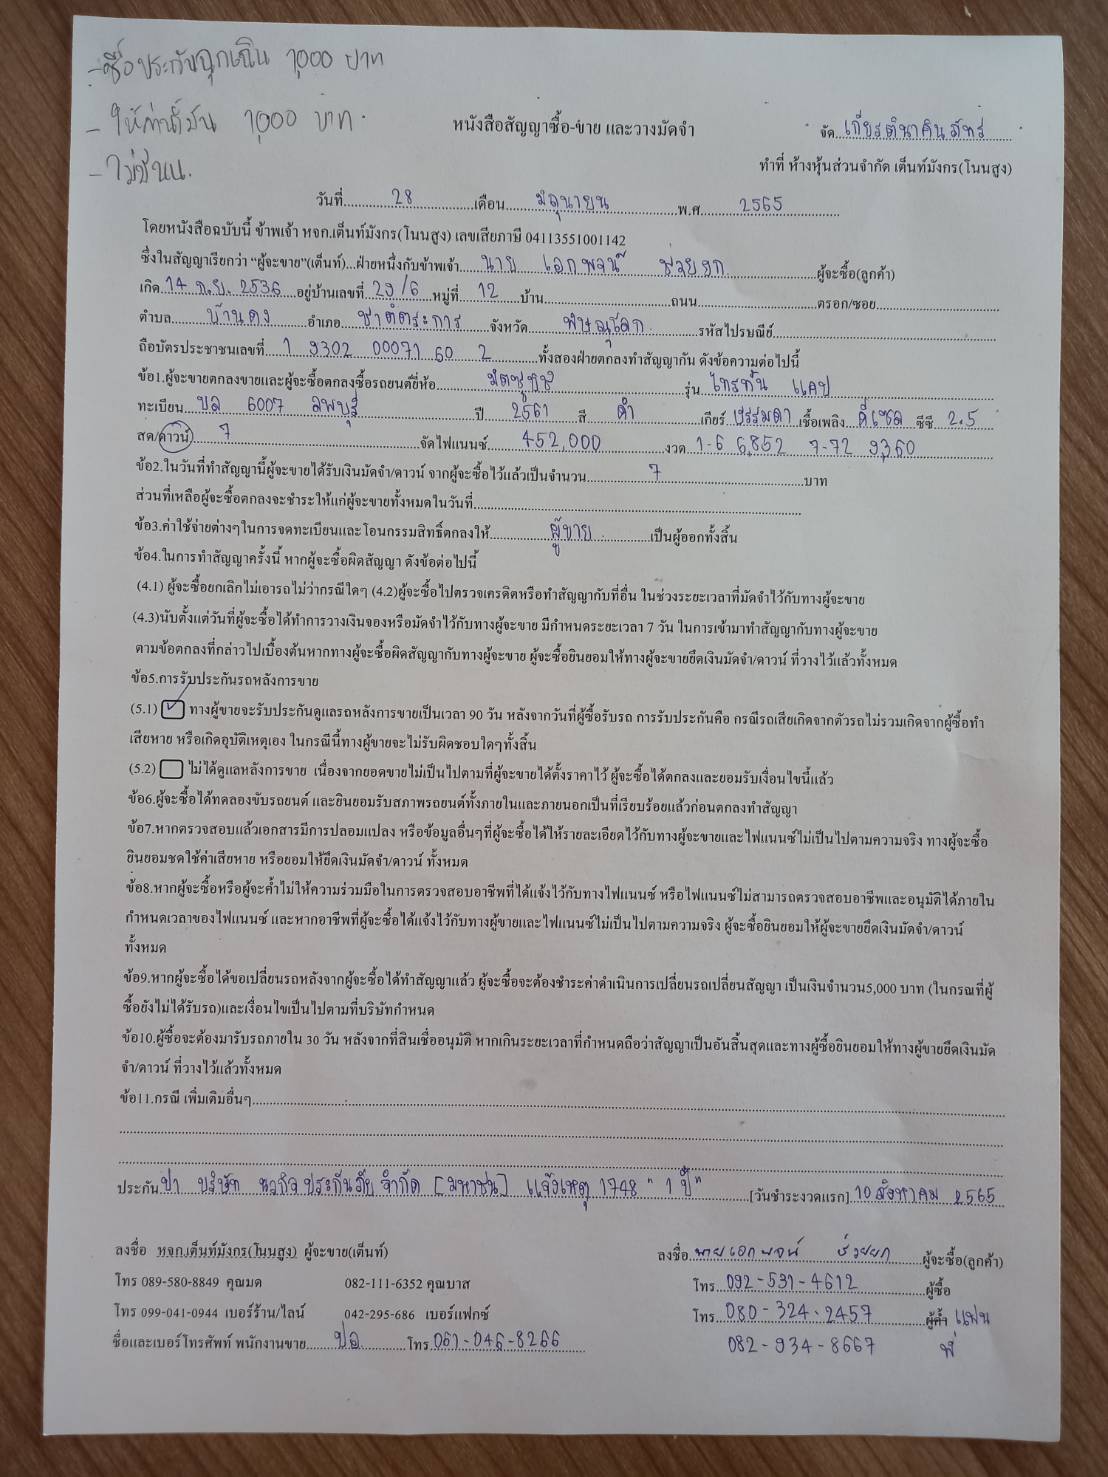 -ซื้อประกันฉุกเฉิน 1,000 บาท
- ให้ค่าน้ำมัน 1,000 บาท.
- ไม่มี
หนังสือสัญญาซื้อ-ขาย และวางมัดจำ
จัด เกียรตินาคินภัทร
ทำที่ ห้างหุ้นส่วนจำกัด เต็นท์มังกร(โนนสูง)
วันที่ 28 เดือน มิถุนายน พ.ศ 2565
โดยหนังสือฉบับนี้ ข้าพเจ้า หจก.เต็นท์มังกร(โนนสูง) เลขเสียภาษี 04113551001142
ซึ่งในสัญญาเรียกว่า "ผู้จะขาย"(เต็นท์)...ฝ่ายหนึ่งกับข้าพเจ้า นาย เอกพจน์ ช่วยยก ผู้จะซื้อ(ลูกค้า)
เกิด 14 ก.ย. 2536 อยู่บ้านเลขที่ 29/6 หมู่ที่ 12 บ้าน ถนน ตรอก/ซอย
ตำบล บ้านดง อำเภอ ชาติตระการ จังหวัด พิษณุโลก รหัสไปรษณีย์
ถือบัตรประชาชนเลขที่ 1 9302 00071 60 2 ทั้งสองฝ่ายตกลงทำสัญญากัน ดังข้อความต่อไปนี้
ข้อ1.ผู้จะขายตกลงขายและผู้จะซื้อตกลงซื้อรถยนต์ยี่ห้อ มิตซูบิชิ รุ่น ไทรทัน แคป
ทะเบียน 6007 ลพบุรี ปี 2561 สี ดำ เกียร์ ธรรมดา เชื้อเพลิง ดีเซล ซีซี 2.5
สด/ดาวน์ 7 จัดไฟแนนซ์ 452,000 งวด 1-6 6,852 7-72 9,360
ข้อ2.ในวันที่ทำสัญญานี้ผู้จะขายได้รับเงินมัดจำ/ดาวน์ จากผู้จะซื้อไว้แล้วเป็นจำนวน 7 บาท
ส่วนที่เหลือผู้จะซื้อตกลงจะชำระให้แก่ผู้จะขายทั้งหมดในวันที่
ข้อ3.ค่าใช้จ่ายต่างๆในการจดทะเบียนและโอนกรรมสิทธิ์ตกลงให้ ผู้ขาย เป็นผู้ออกทั้งสิ้น
ข้อ4.ในการทำสัญญาครั้งนี้ หากผู้จะซื้อผิดสัญญา ดังข้อต่อไปนี้
(4.1) ผู้จะซื้อยกเลิกไม่เอารถไม่ว่ากรณีใดๆ (4.2)ผู้จะซื้อไปตรวจเครดิตหรือทำสัญญากับที่อื่น ในช่วงระยะเวลาที่มัดจำไว้กับทางผู้จะขาย
(4.3)นับตั้งแต่วันที่ผู้จะซื้อได้ทำการวางเงินจองหรือมัดจำไว้กับทางผู้จะขาย มีกำหนดระยะเวลา 7 วัน ในการเข้ามาทำสัญญากับทางผู้จะขาย
ตามข้อตกลงที่กล่าวไปเบื้องต้นหากทางผู้จะซื้อผิดสัญญากับทางผู้จะขาย ผู้จะซื้อยินยอมให้ทางผู้จะขายยึดเงินมัดจำ/ดาวน์ ที่วางไว้แล้วทั้งหมด
ข้อ5.การรับประกันรถหลังการขาย
(5.1) ทางผู้ขายจะรับประกันดูแลรถหลังการขายเป็นเวลา 90 วัน หลังจากวันที่ผู้ซื้อรับรถ การรับประกันคือ กรณีรถเสียเกิดจากตัวรถไม่รวมเกิดจากผู้ซื้อทำ
เสียหาย หรือเกิดอุบัติเหตุเอง ในกรณีนี้ทางผู้ขายจะไม่รับผิดชอบใดๆทั้งสิ้น
(5.2) ไม่ได้ดูแลหลังการขาย เนื่องจากยอดขายไม่เป็นไปตามที่ผู้จะขายได้ตั้งราคาไว้ ผู้จะซื้อได้ตกลงและยอมรับเงื่อนไขนี้แล้ว
ข้อ6.ผู้จะซื้อได้ทดลองขับรถยนต์ และยินยอมรับสภาพรถยนต์ทั้งภายในและภายนอกเป็นที่เรียบร้อยแล้วก่อนตกลงทำสัญญา
ข้อ7.หากตรวจสอบแล้วเอกสารมีการปลอมแปลง หรือข้อมูลอื่นๆที่ผู้จะซื้อได้ให้รายละเอียดไว้กับทางผู้จะขายและไฟแนนซ์ไม่เป็นไปตามความจริง ทางผู้จะซื้อ
ยินยอมชดใช้ค่าเสียหาย หรือยอมให้ยึดเงินมัดจำ/ดาวน์ ทั้งหมด
ข้อ8.หากผู้จะซื้อหรือผู้จะค้ำไม่ให้ความร่วมมือในการตรวจสอบอาชีพที่ได้แจ้งไว้กับทางไฟแนนซ์ หรือไฟแนนซ์ไม่สามารถตรวจสอบอาชีพและอนุมัติได้ภายใน
กำหนดเวลาของไฟแนนซ์ และหากอาชีพที่ผู้จะซื้อได้แจ้งไว้กับทางผู้ขายและไฟแนนซ์ไม่เป็นไปตามความจริง ผู้จะซื้อยินยอมให้ผู้จะขายยึดเงินมัดจำ/ดาวน์
ทั้งหมด
ข้อ9.หากผู้จะซื้อได้ขอเปลี่ยนรถหลังจากผู้จะซื้อได้ทำสัญญาแล้ว ผู้จะซื้อจะต้องชำระค่าดำเนินการเปลี่ยนรถเปลี่ยนสัญญา เป็นเงินจำนวน5,000 บาท (ในกรณที่ผู้
ซื้อยังไม่ได้รับรถ)และเงื่อนไขเป็นไปตามที่บริษัทกำหนด
ข้อ10.ผู้ซื้อจะต้องมารับรถภายใน 30 วัน หลังจากที่สินเชื่ออนุมัติ หากเกินระยะเวลาที่กำหนดถือว่าสัญญาเป็นอันสิ้นสุดและทางผู้ซื้อยินยอมให้ทางผู้ขายยึดเงินมัด
จำ/ดาวน์ ที่วางไว้แล้วทั้งหมด
ข้อ11.กรณี เพิ่มเติมอื่นๆ
ประกัน ปา บริษัท นวกิจประกันภัย จำกัด [มหาชน] แจ้งเหตุ 1748 " 1 ปี " [วันชำระงวดแรก] 10 สิงหาคม 2565
ลงชื่อ หจก.เต็นท์มังกร(โนนสูง) ผู้จะขาย(เต็นท์)
ลงชื่อ นายเอกพจน์ ช่วยยก ผู้จะซื้อ(ลูกค้า)
โทร 089-580-8849 คุณมด 082-111-6352 คุณบาส
โทร 092-531-4612 ผู้ซื้อ
โทร 099-041-0944 เบอร์ร้าน/ไลน์ 042-295-686 เบอร์แฟกซ์
โทร 080-324-2457 ผู้ค้ำ แฟน
ชื่อและเบอร์โทรศัพท์ พนักงานขาย โทร 061-046-8266
082-934-8667 พี่